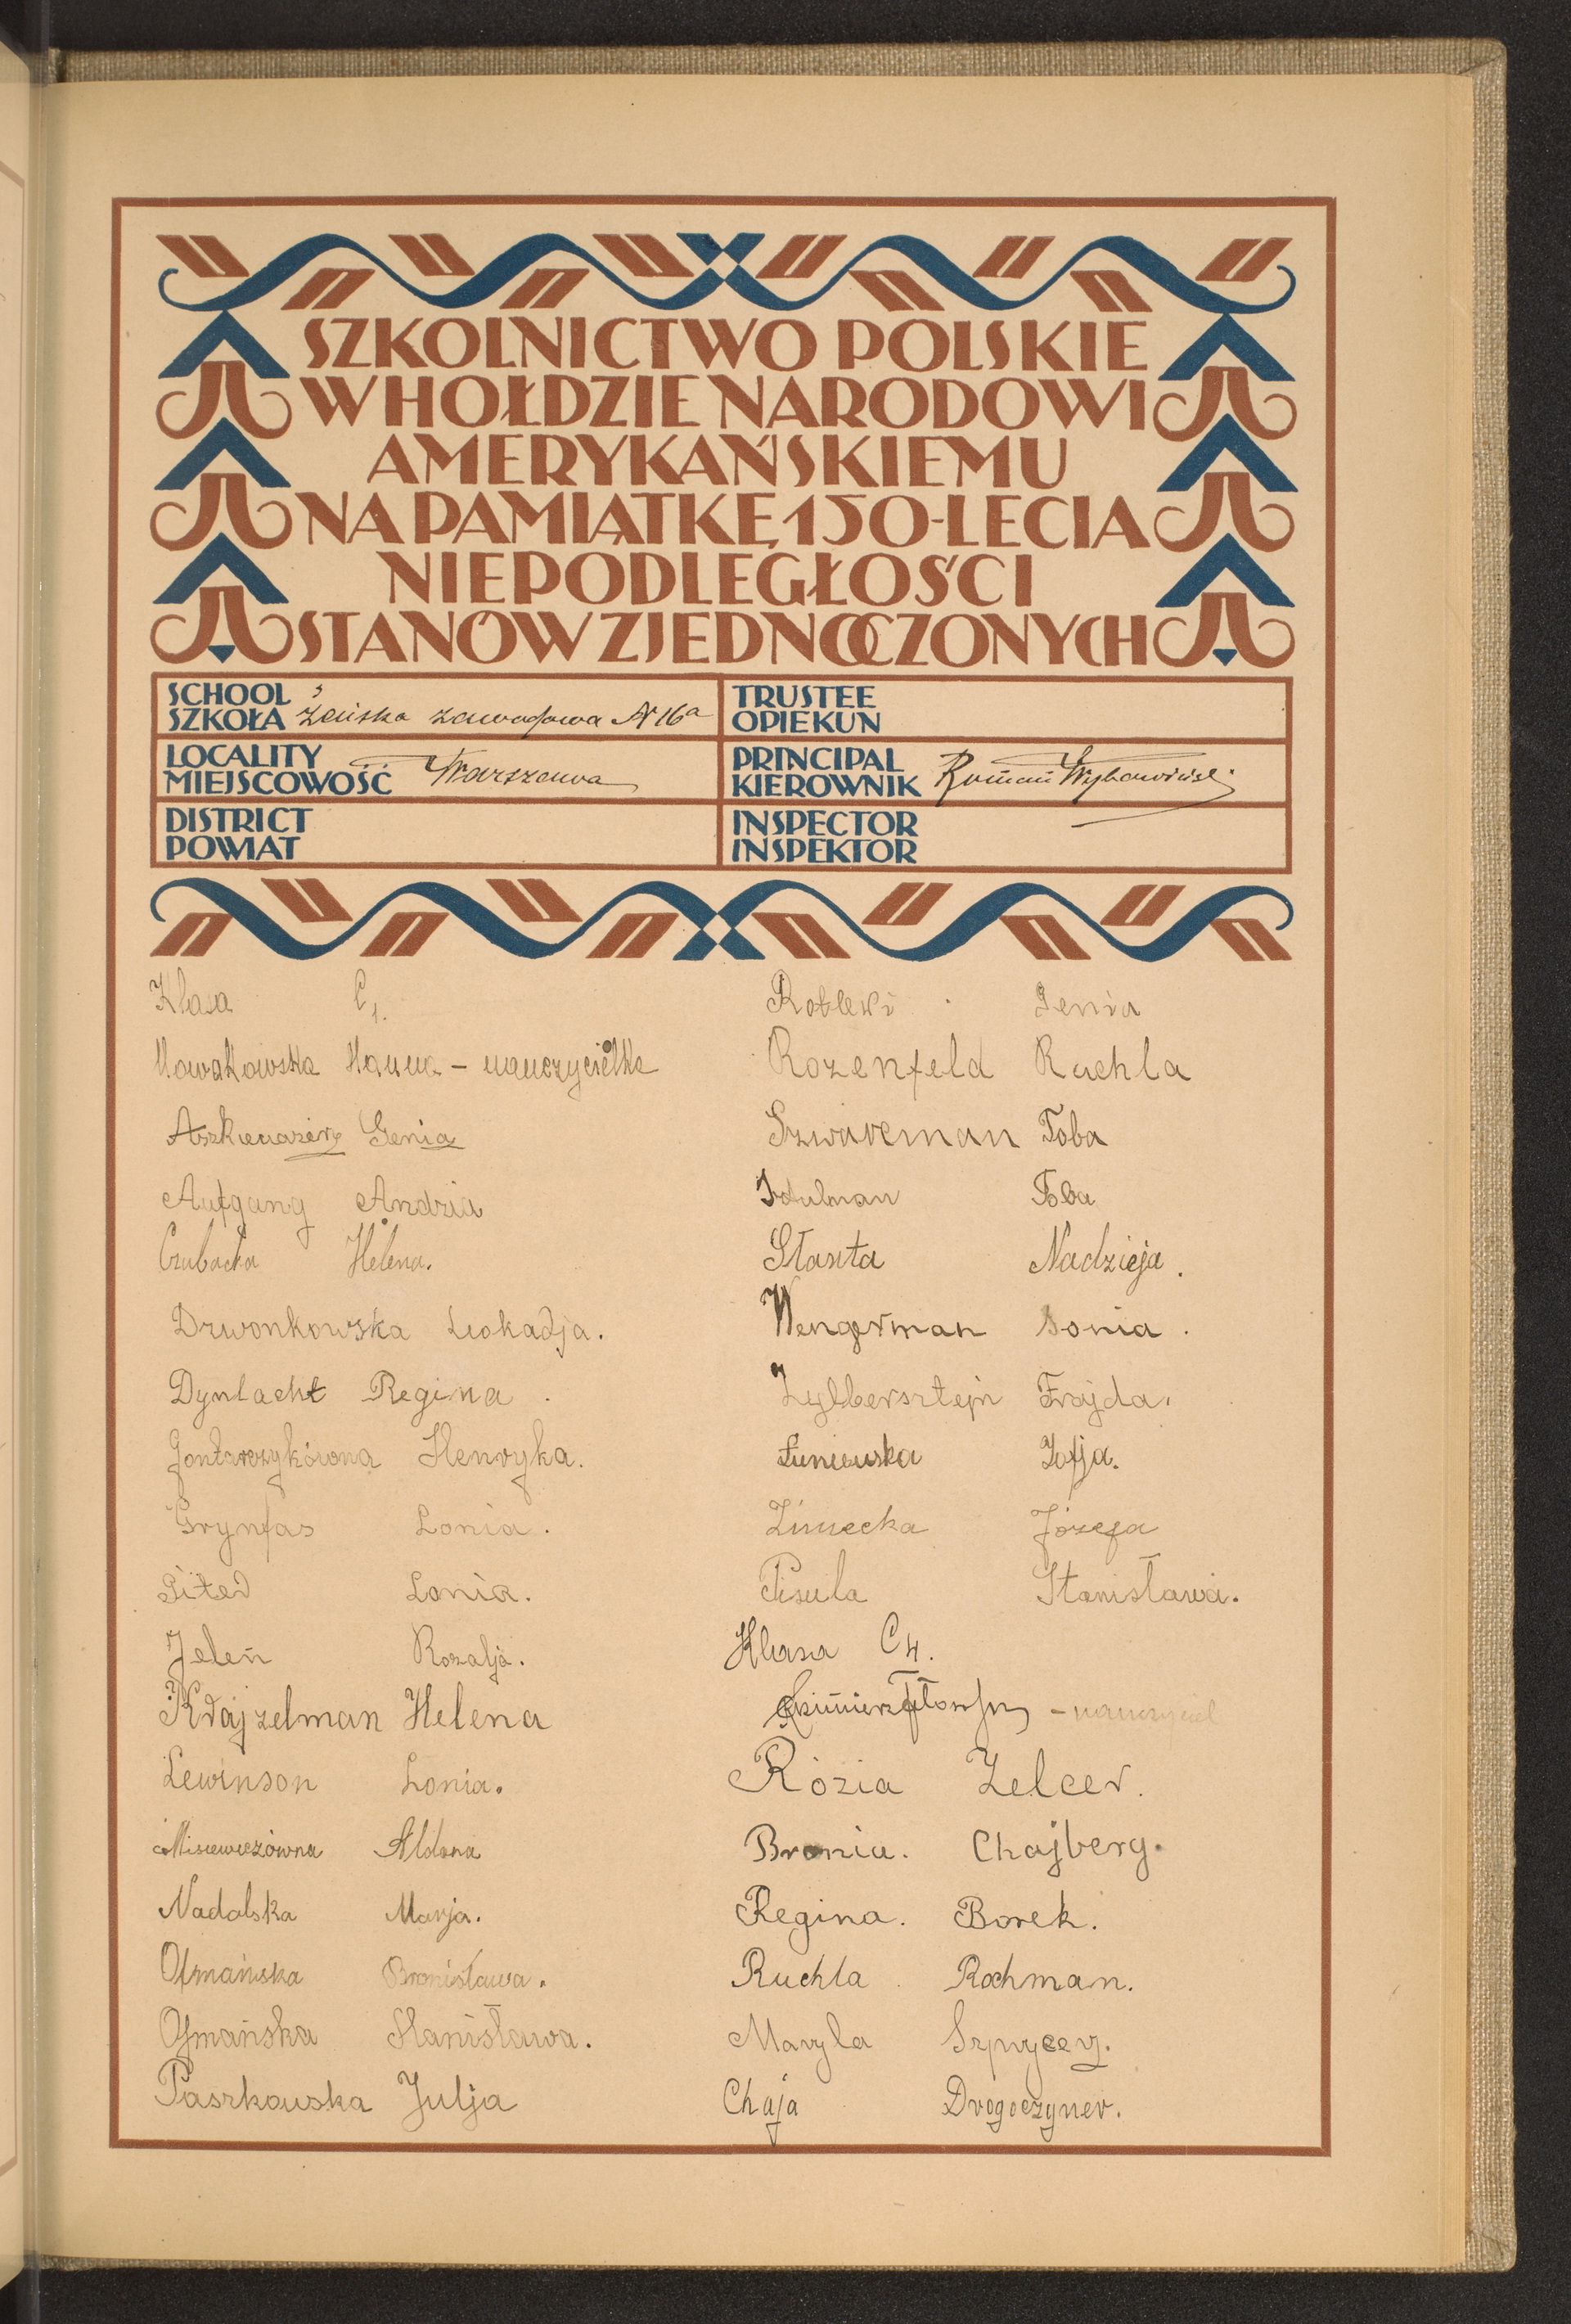 SZKOLNICTWO POLSKIE
W HOŁDZIE NARODOWI
AMERYKAŃSKIEMU
NA PAMIĄTKĘ 150-LECIA
NIEPODLEGŁOŚCI
STANÓW ZJEDNOCZONYCH
SCHOOL
SZKOŁA Żeńska zawodowa № 16a
TRUSTEE
OPIEKUN
LOCALITY
MIEJSCOWOŚĆ Warszawa
PRINCIPAL
KIEROWNIK Roman
DISTRICT
POWIAT
INSPECTOR
INSPEKTOR
Klasa C1.
Nowakowska Hanna - nauczycielka
Aszkenazery Genia
Aufgang Andzia
Czubacka Helena.
Dzwonkowska Leokadja.
Dynlacht Regina.
Gontarczykówna Henryka.
Grynfas Lonia.
Gited Lonia.
Jeleń Rozalja.
Krajzelman Helena
Lewinson Lonia.
Misiewiczówna Aldona
Nadalska Marja.
Ofmańska Bronisława.
Ofmańska Stanisława.
Paszkowska Julja
Genia
Rozenfeld Ruchla
Szwarcman Toba
Toba
Słanta Nadzieja.
Wengerman Sonia.
Zylbersztejn Frajda.
Łuniewska Zofja.
Zimecka Józefa
Pisula Stanisława.
Klasa C4.
- nauczyciel
Rózia Zelcer.
Bronia. Chajberg.
Regina. Borek.
Ruchla Rochman.
Maryla Szprycer.
Chaja Drogoczyner.